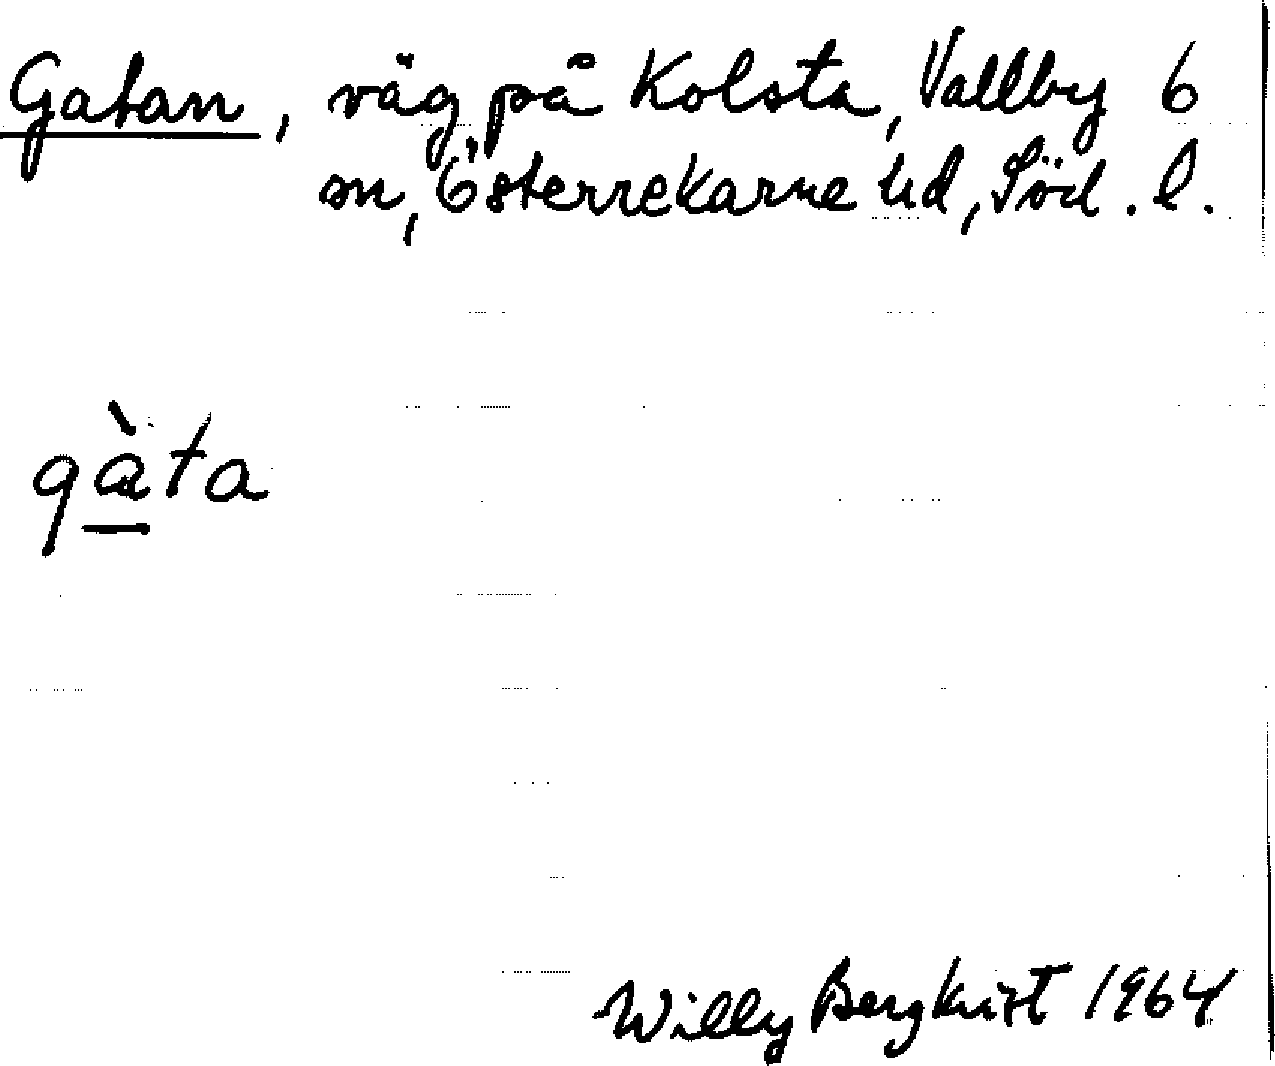 Gatan, väg på Kolsta, Vallby 6
sn, Österrekarne hd, Söd. l.
gàta
Willy Bergkvist 1964